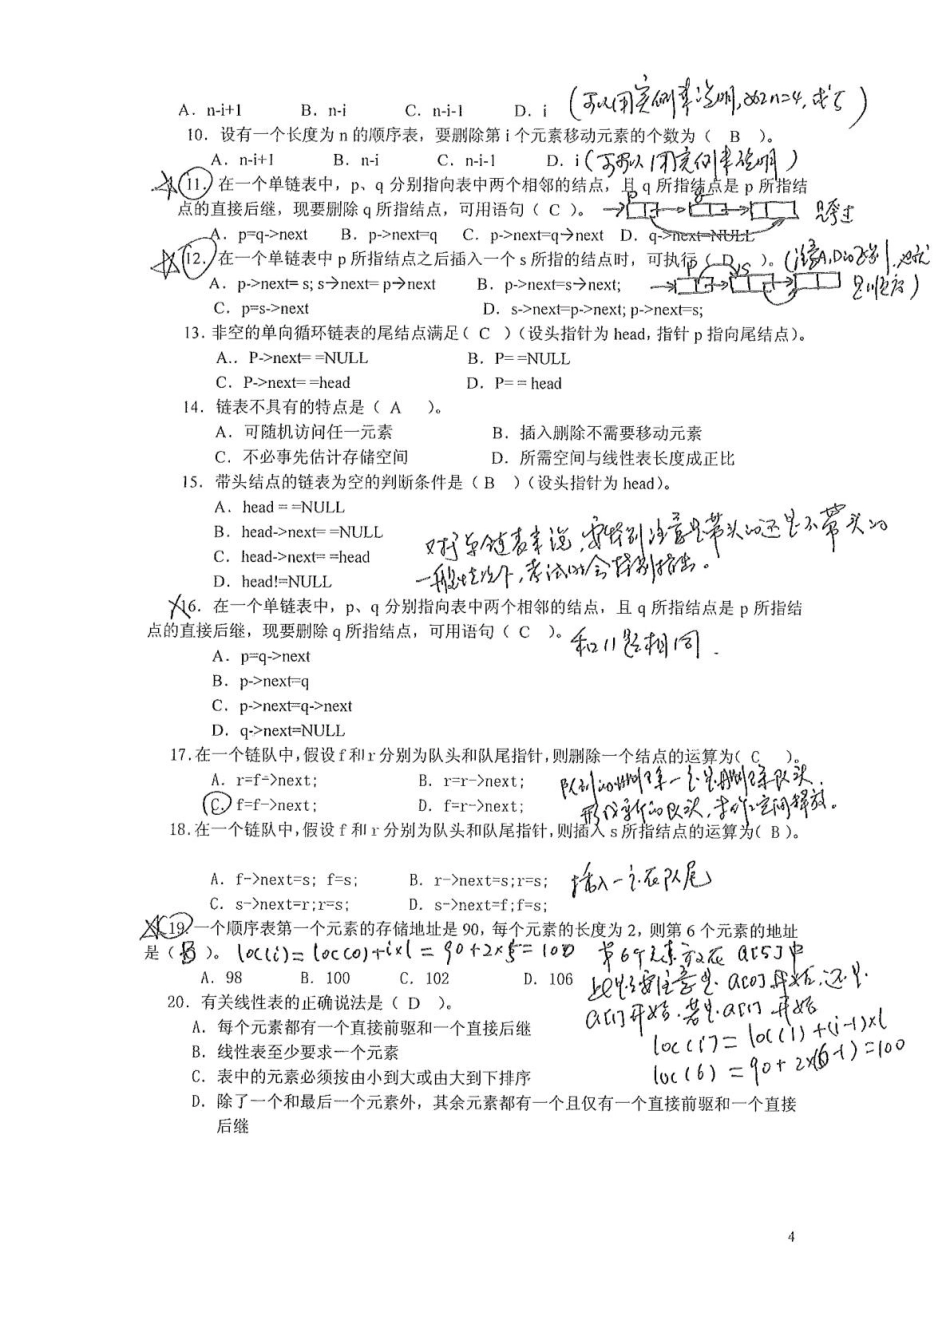 A．n-i+1 B．n-i C．n-i-1 D．i (可以用实例来说明,
10．设有一个长度为 n 的顺序表，要删除第 i 个元素移动元素的个数为（ B ）。
A．n-i+1 B．n-i C．n-i-1 D．i (可以用实例来说明)
11．在一个单链表中，p、q 分别指向表中两个相邻的结点，且 q 所指结点是 p 所指结
点的直接后继，现要删除 q 所指结点，可用语句（ C ）。
A．p=q->next B．p->next=q C．p->next=q→next D．q->next=NULL
12．在一个单链表中 p 所指结点之后插入一个 s 所指的结点时，可执行（ D ）。
A．p->next= s; s→next= p→next B．p->next=s→next;
C．p=s->next D．s->next=p->next; p->next=s;
13．非空的单向循环链表的尾结点满足（ C ）（设头指针为 head，指针 p 指向尾结点）。
A.．P->next= =NULL B．P= =NULL
C．P->next= =head D．P= = head
14．链表不具有的特点是（ A ）。
A．可随机访问任一元素 B．插入删除不需要移动元素
C．不必事先估计存储空间 D．所需空间与线性表长度成正比
15．带头结点的链表为空的判断条件是（ B ）（设头指针为 head）。
A．head = =NULL
B．head->next= =NULL
C．head->next= =head
D．head!=NULL
对于单链表来说,要特别注意是带头的还是不带头的
一般情况下,考试时会特别指出。
16．在一个单链表中，p、q 分别指向表中两个相邻的结点，且 q 所指结点是 p 所指结
点的直接后继，现要删除 q 所指结点，可用语句（ C ）。 和11题相同.
A．p=q->next
B．p->next=q
C．p->next=q->next
D．q->next=NULL
17.在一个链队中,假设 f 和 r 分别为队头和队尾指针,则删除一个结点的运算为( C )。
A．r=f->next; B．r=r->next;
C．f=f->next; D．f=r->next;
18.在一个链队中,假设 f 和 r 分别为队头和队尾指针,则插入 s 所指结点的运算为( B )。
A．f->next=s; f=s; B．r->next=s;r=s; 插入一个在队尾
C．s->next=r;r=s; D．s->next=f;f=s;
19.一个顺序表第一个元素的存储地址是 90，每个元素的长度为 2，则第 6 个元素的地址
是（ B ）。 loc(i)=loc(0)+i×l = 90+2×5=100 第6个元素应在 a[5]中
A．98 B．100 C．102 D．106
20．有关线性表的正确说法是（ D ）。
A．每个元素都有一个直接前驱和一个直接后继
B．线性表至少要求一个元素
C．表中的元素必须按由小到大或由大到下排序
D．除了一个和最后一个元素外，其余元素都有一个且仅有一个直接前驱和一个直接
后继
此题要注意是a[0]开始,还是
a[1]开始.若是a[1]开始
loc(i)=loc(1)+(i-1)×l
loc(6)=90+2×(6-1)=100
4